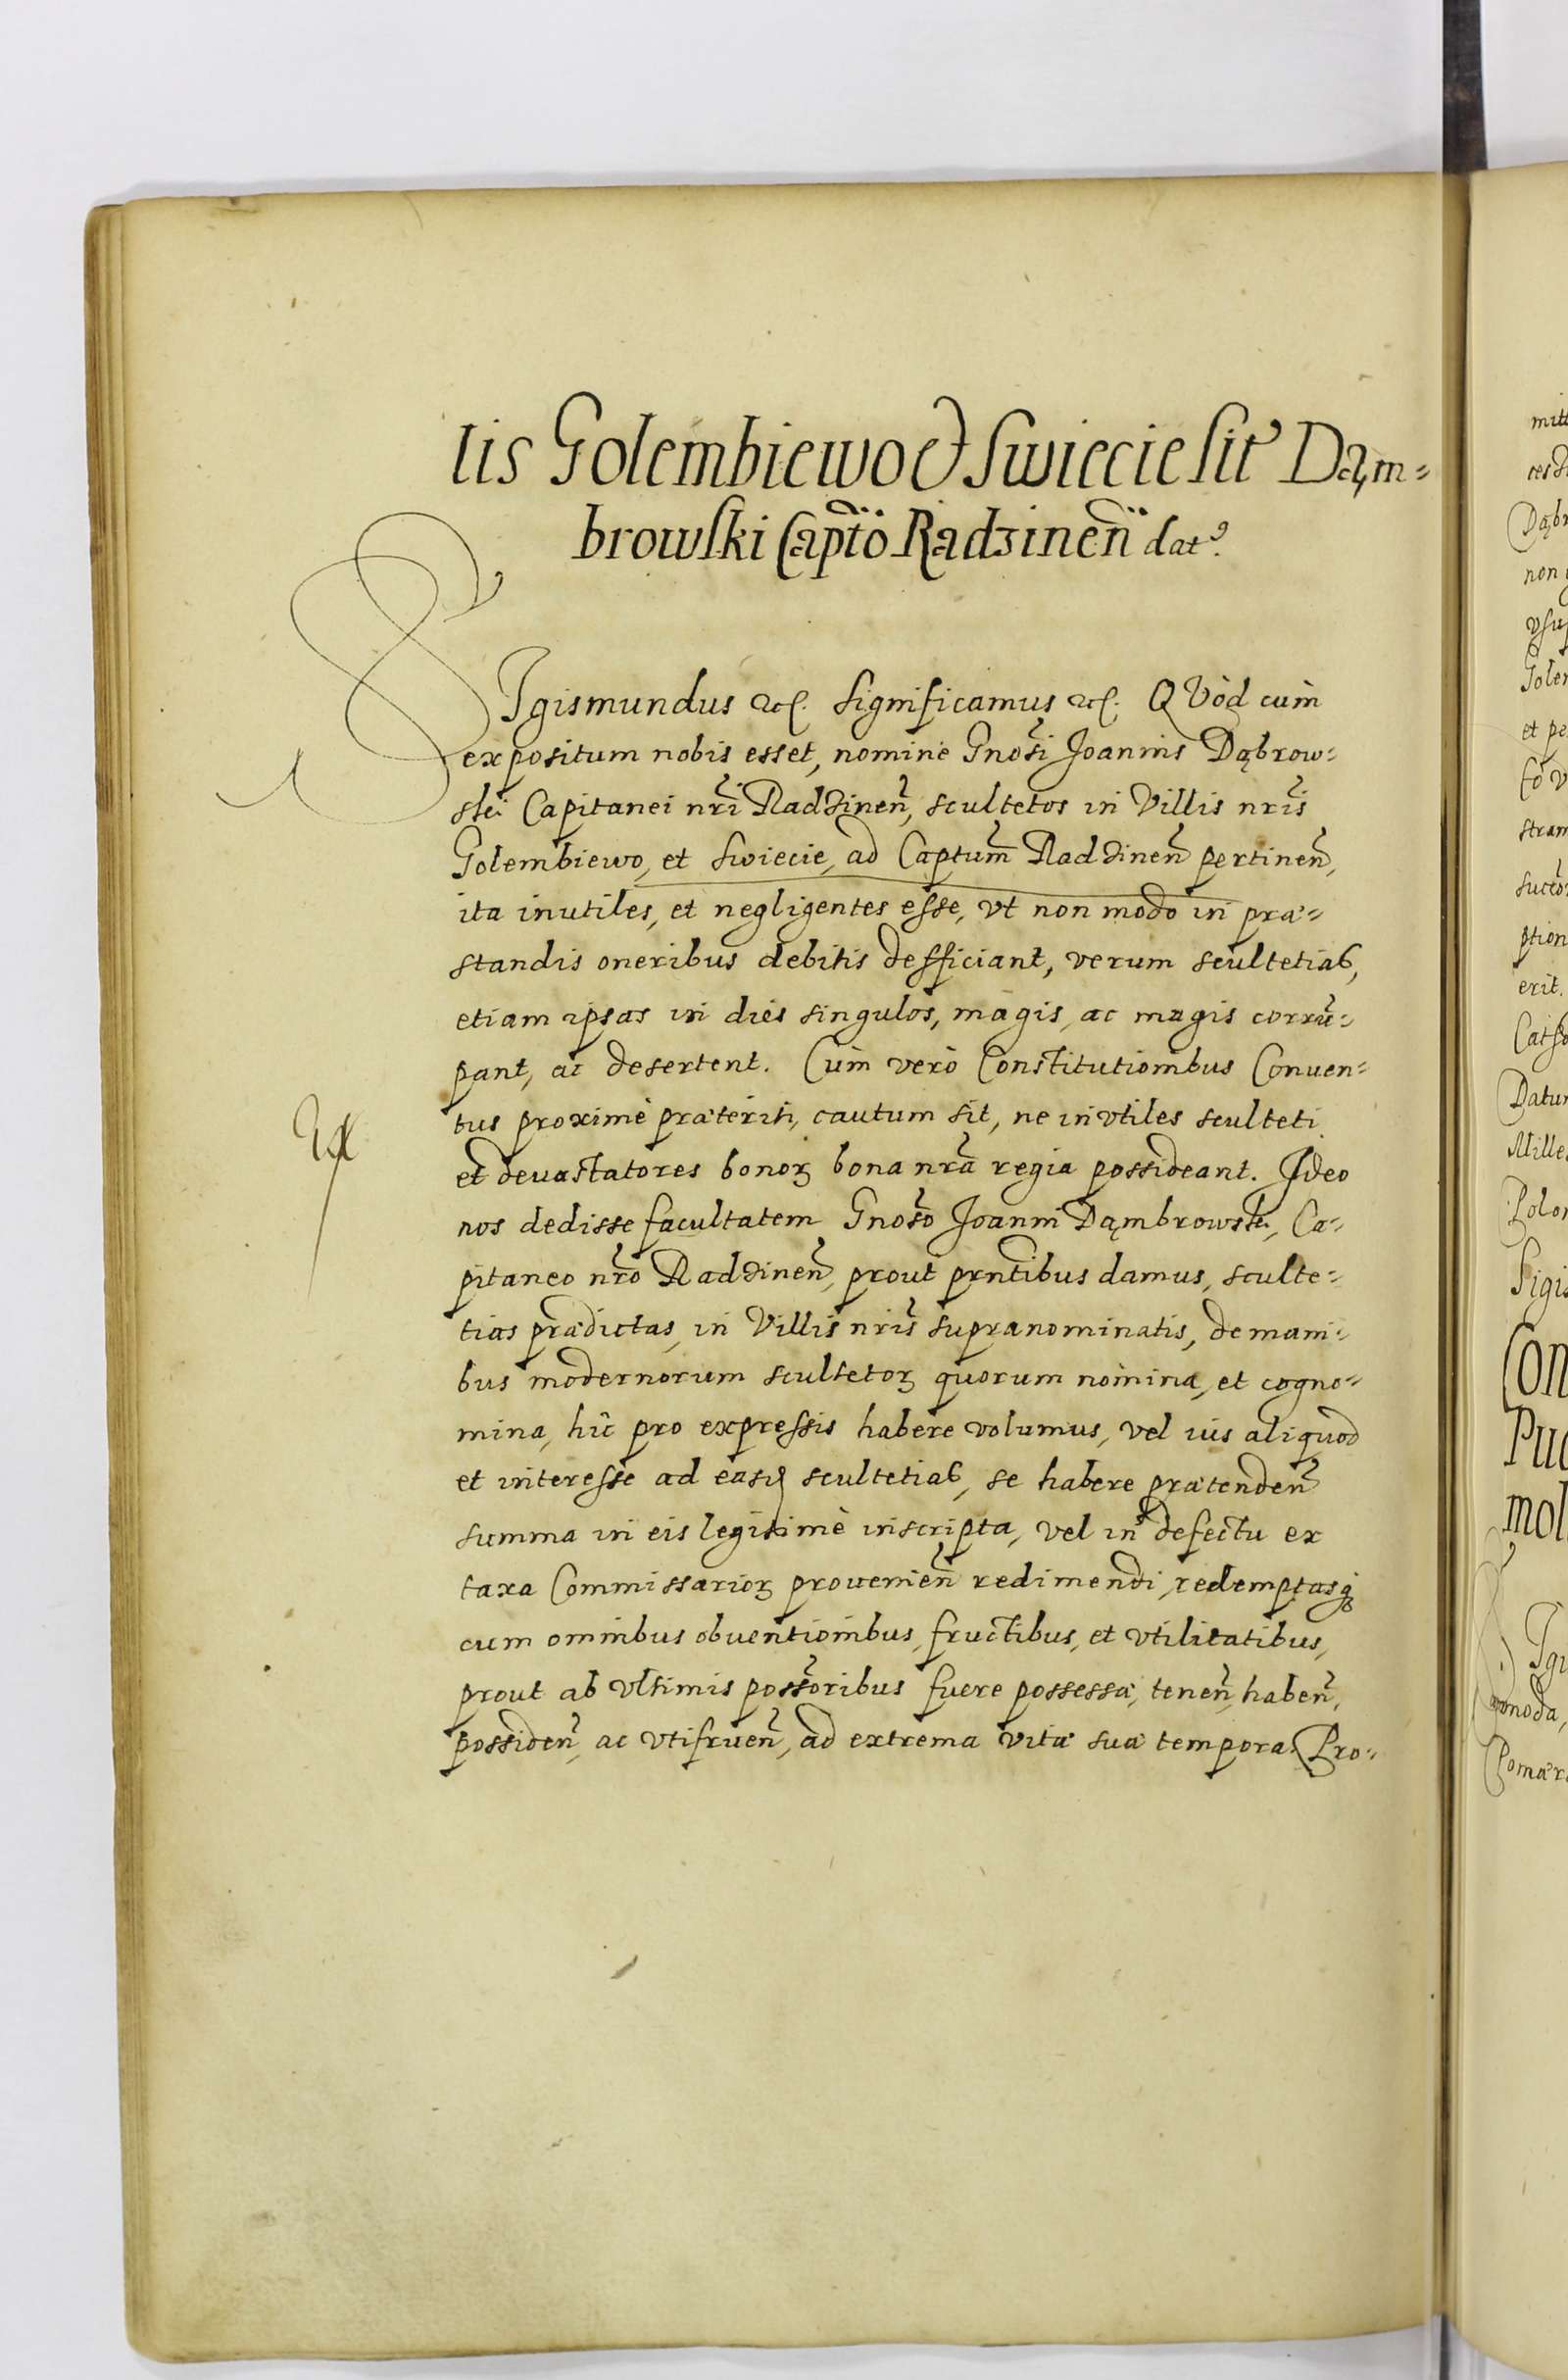 lis Golembiewo & Swiecie sit Dąm=
browski Capto Radzinen dat9.
SIgismundus &c. Significamus &c. QVòd cùm
expositum nobis esset, nomine Gnosi Joannis Dąbrow=
ski Capitanei nri Radzinen, scultetos in Villis nris
Golembiewo, et Swiecie, ad Captum Radzinen pertinen,
ita inutiles, et negligentes esse, vt non modo in præ=
standis oneribus debitis defficiant, verum scultetias,
etiam ipsas in dies singulos, magis, ac magis corrū=
pant, ac desertent. Cùm verò Constitutionibus Conuen=
tus proximè præteriti, cautum sit, ne invtiles sculteti
et deuastatores bonoꝝ bona nra regia possideant. Ideo
nos dedisse facultatem Gnoso Joanni Dąmbrowski, Ca=
pitaneo nro Radzinen, prout prntibus damus, sculte=
tias prædictas, in Villis nris supranominatis, de mani=
bus modernorum scultetoꝝ quorum nomina, et cogno=
mina, hîc pro expressis habere volumus, vel ius aliquod
et interesse ad easd scultetias, se habere prætenden
summa in eis legitimè inscripta, vel in defectu ex
taxa Commissarioꝝ prouenien redimendi, redemptasq
cum omnibus obuentionibus, fructibus, et vtilitatibus,
prout ab vltimis possoribus fuere possessæ, tenen, haben,
possiden, ac vtifruen, ad extrema vitæ suæ tempora. Pro=
mitt
Dąbr
non
vsu
Goler
et pe
Co V
stram
succo
ption
erit.
Datum
Mille
Polon
Sigis
Con
Puc
mol
Igi
moda,
Pomær